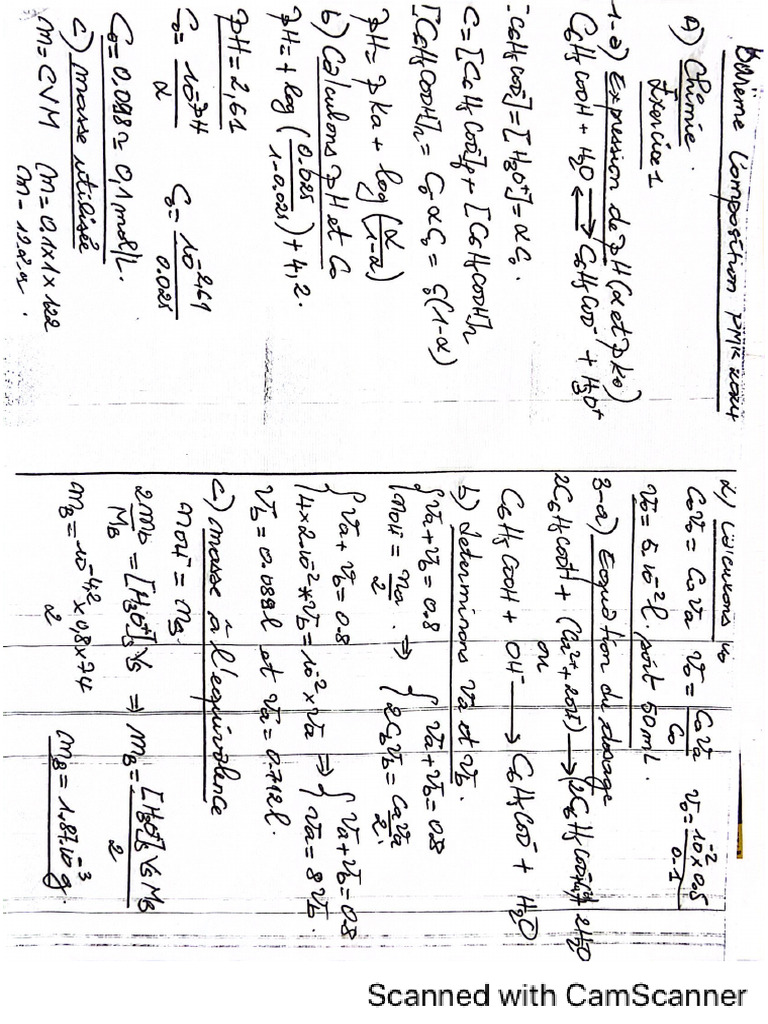 Barème Composition PMK 2024
A) Chimie.
Exercice 1
1-a) Expression de pH (α et pka)
C₆H₅COOH + H₂O ⇌ C₆H₅COO⁻ + H₃O⁺
[C₆H₅COO⁻] = [H₃O⁺] = αC₀.
C = [C₆H₅COO⁻]f + [C₆H₅COOH]r
[C₆H₅COOH]r = C₀ - αC₀ = C₀(1-α)
pH = pKa + log(α/(1-α))
b) Calculons pH et C₀
pH = + log(0.025/(1-0.025)) + 4,2.
pH = 2,61
C₀ = 10^-pH/α C₀ = 10^-2,61/0.025
C₀ = 0,098 ≈ 0,1 mol/L.
c) masse utilisée
m = CVM m = 0.1x1x122
m = 12.2g.
2) Calculons v₀
C₀V₀ = CaVa V₀ = CaVa/C₀ V₀ = 10⁻² x 0.5/0.1
V₀ = 5.10⁻²l. soit 50mL.
3-a) Equation du dosage
2C₆H₅COOH + (Ca²⁺ + 2OH⁻) → (2C₆H₅COO⁻ + Ca²⁺) + 2H₂O
ou
C₆H₅COOH + OH⁻ → C₆H₅COO⁻ + H₂O
b) Determinons Va et Vb.
{ Va + Vb = 0.8 { Va + Vb = 0.8
nOH⁻ = na/2 . ⇒ { 2CbVb = CaVa/2
{ Va + Vb = 0.8 { Va + Vb = 0.8
4 x 2.10⁻² * Vb = 10⁻² x Va ⇒ { Va = 8Vb.
Vb = 0.089l et Va = 0.712l.
c) masse à l'equivalence
nOH⁻ = na
2mb/MB = [H₃O⁺]Vs ⇒ mB = [H₃O⁺]Vs MB/2
mB = 10^-4,2 x 0,8 x 74/2 mB = 1.87.10⁻³g.
Scanned with CamScanner